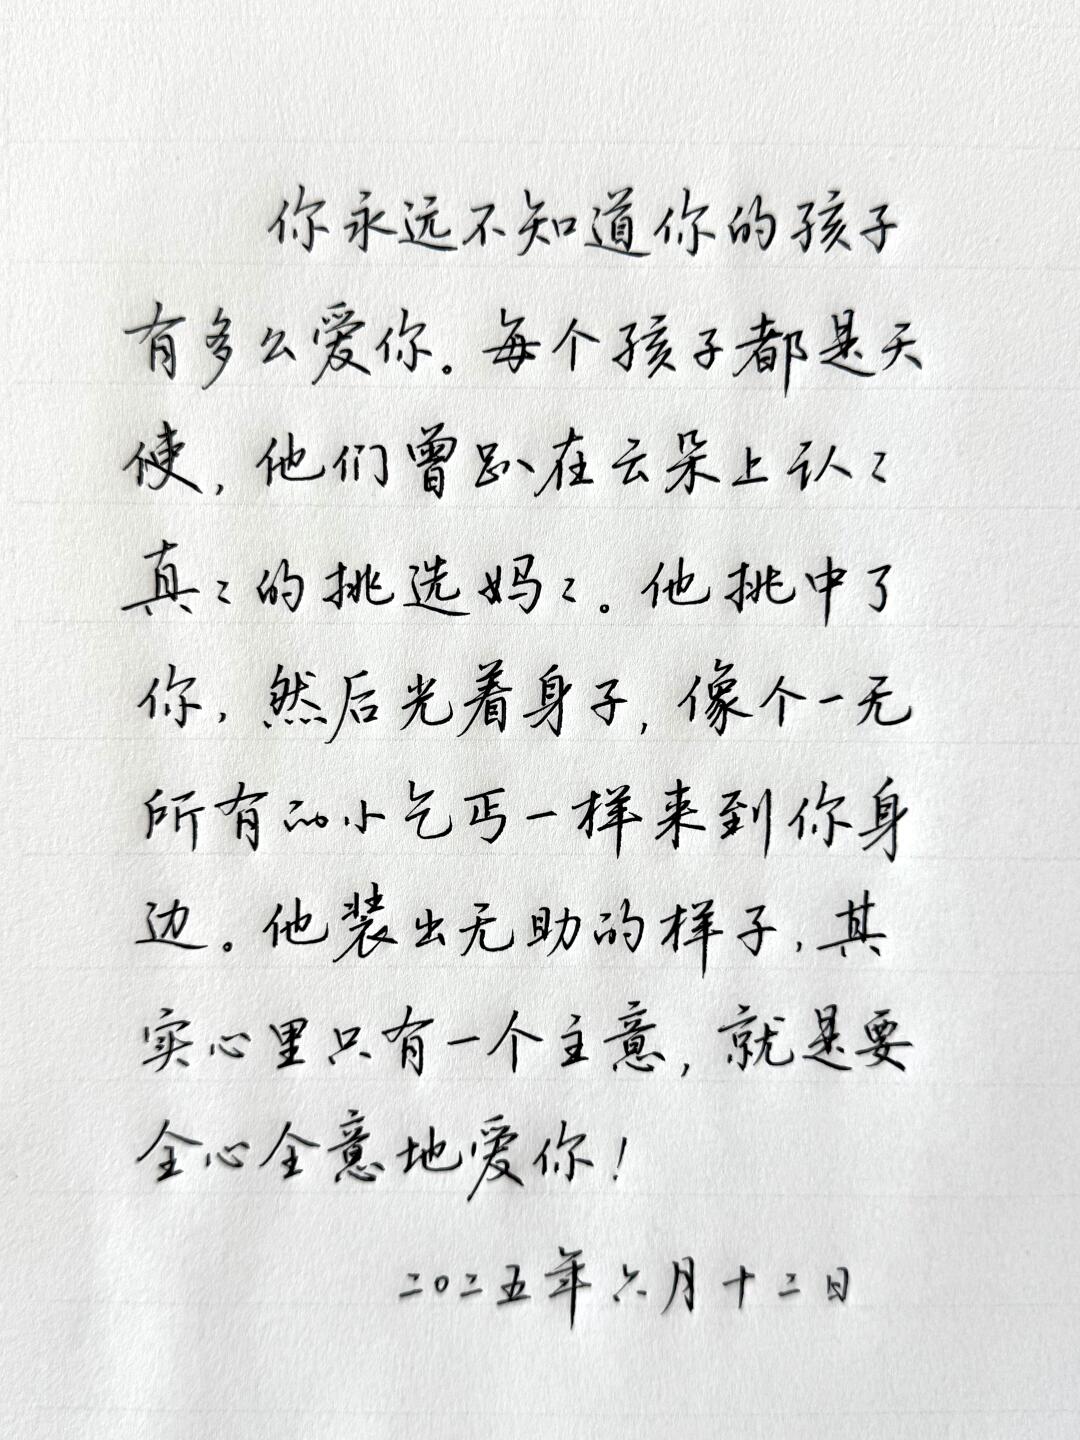 你永远不知道你的孩子
有多么爱你。每个孩子都是天
使，他们曾趴在云朵上认々
真々的挑选妈々。他挑中了
你，然后光着身子，像个一无
所有的小乞丐一样来到你身
边。他装出无助的样子，其
实心里只有一个主意，就是要
全心全意地爱你！
二〇二五年六月十二日